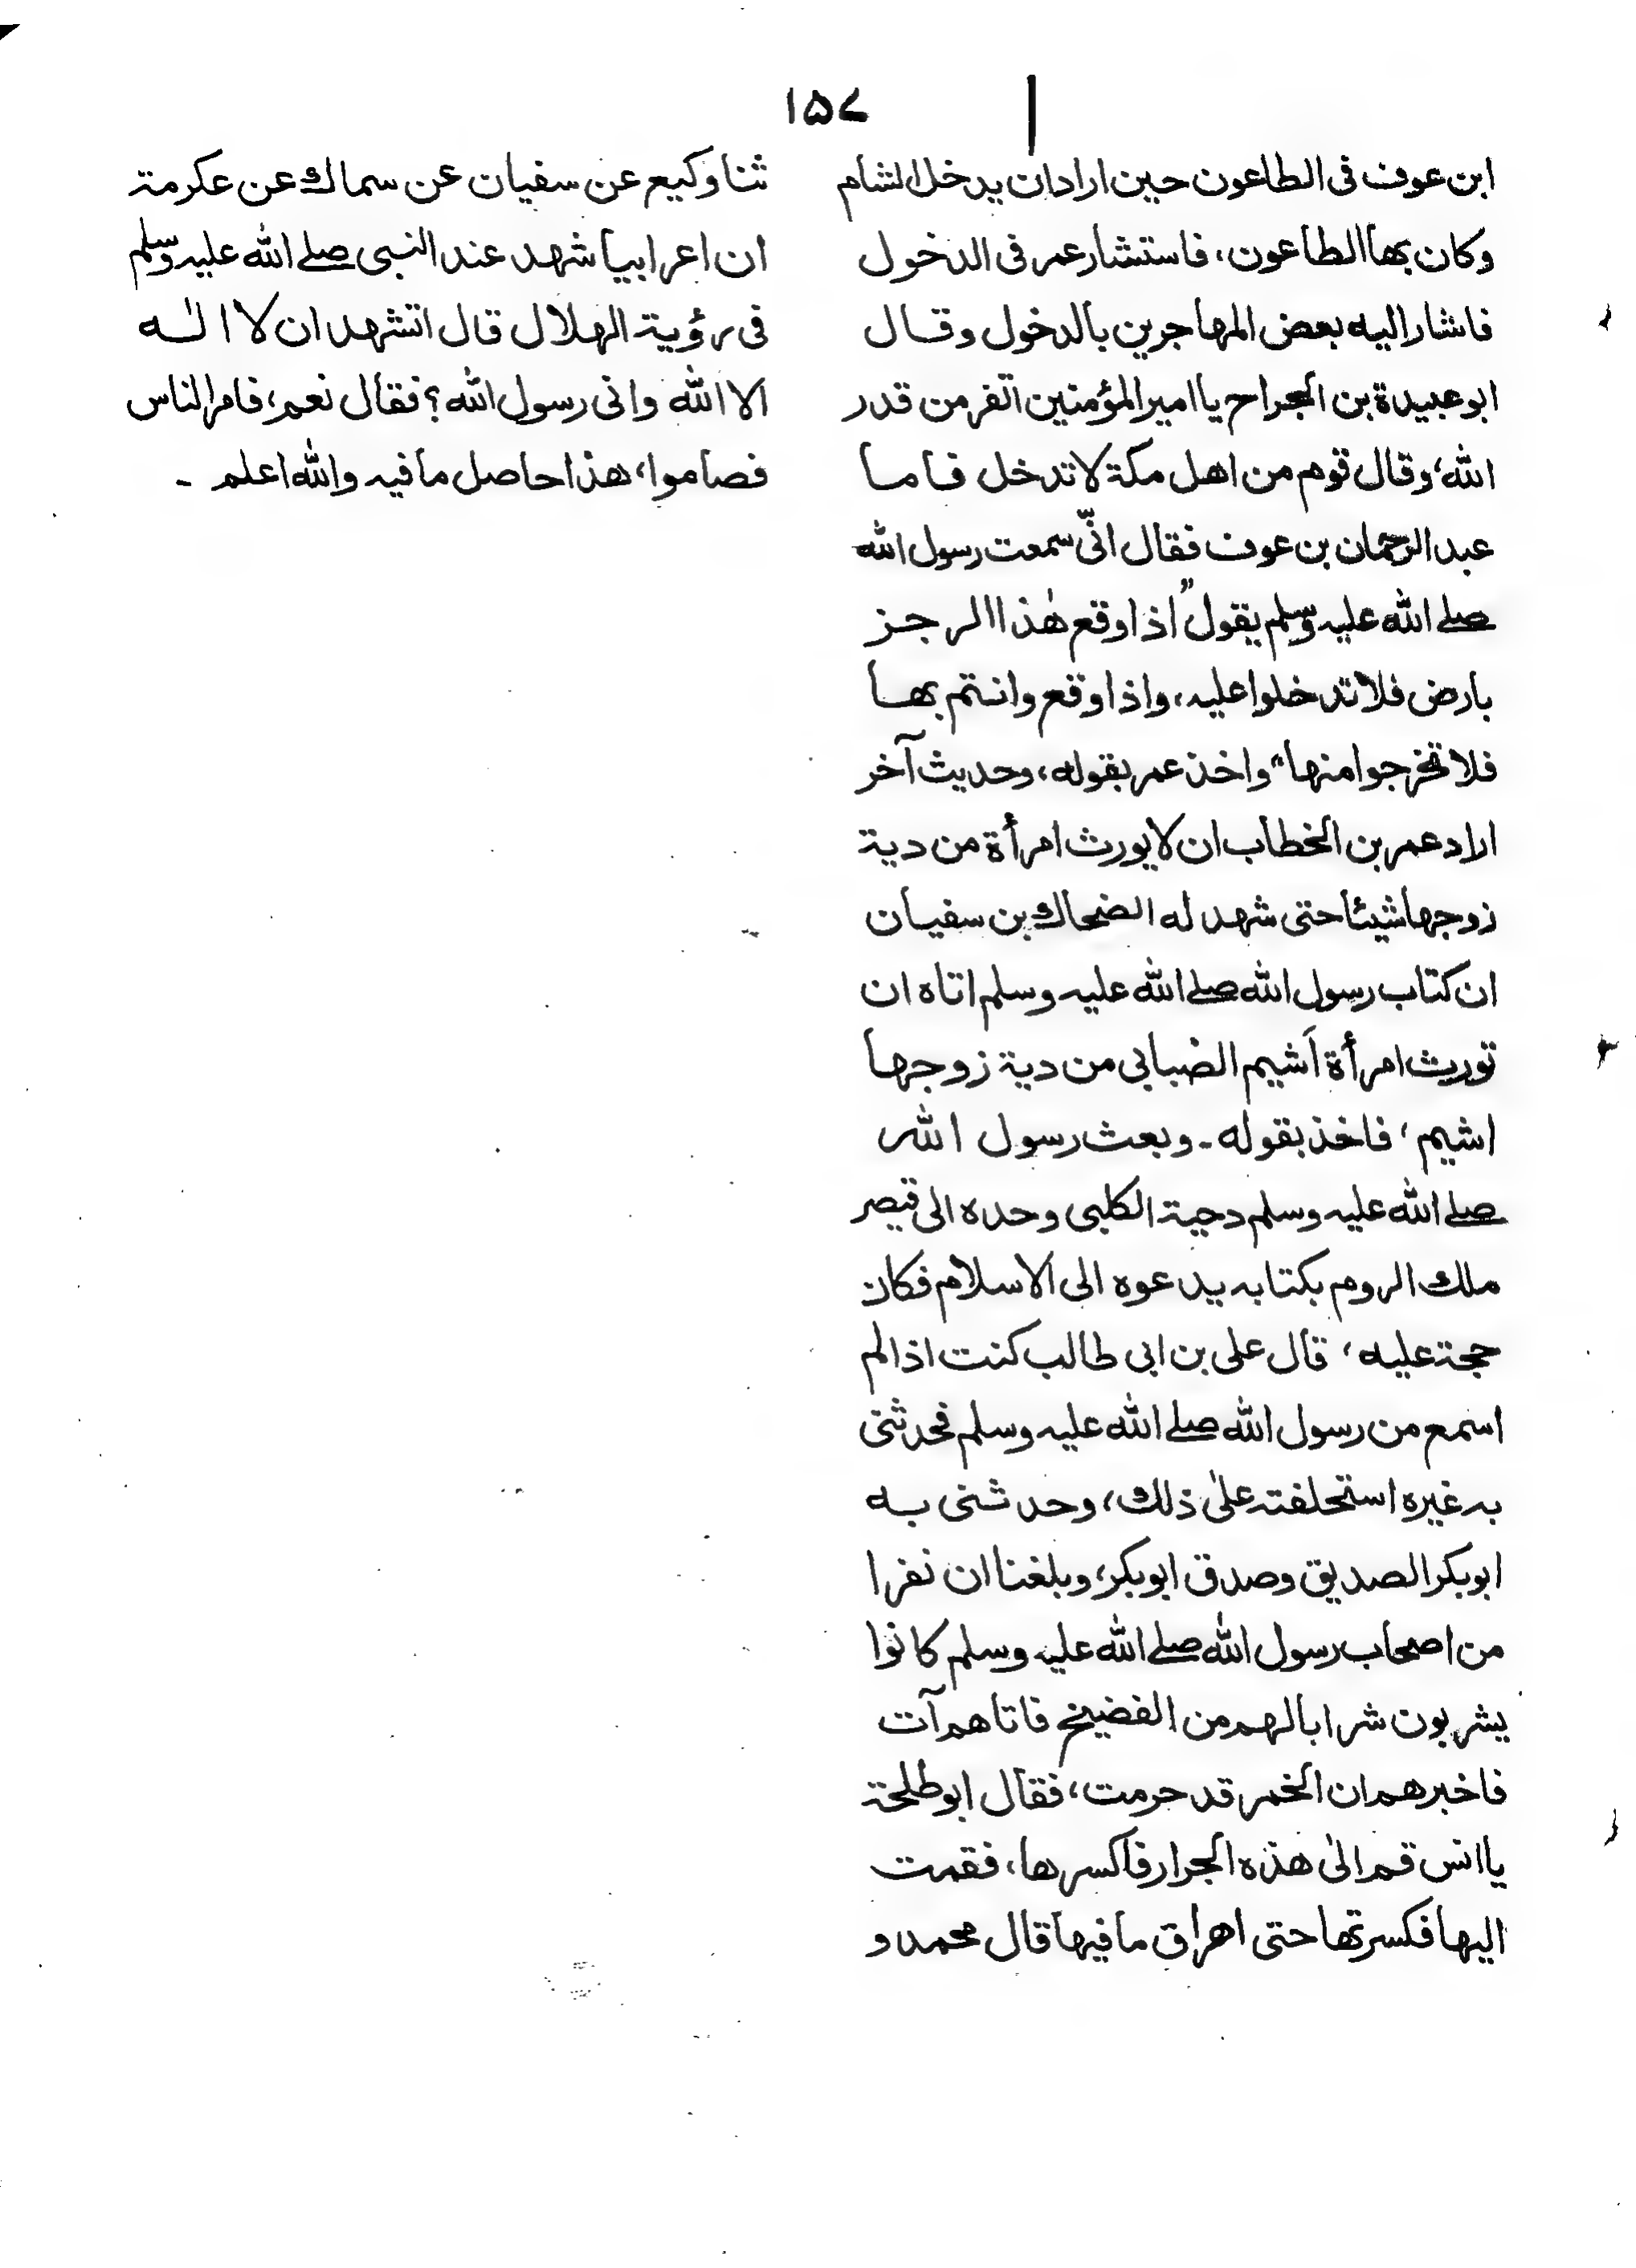 ۱۵۷
ابن عوف فی الطاعون حین اراد ان یدخل الشام
وکان بها الطاعون، فاستشار عمر فی الدخول
فاشار الیه بعض المهاجرین بالدخول وقال
ابو عبیدة بن الجراح یا امیر المؤمنین اتفر من قدر
الله، وقال قوم من اهل مکة لا تدخل فاما
عبد الرحمان بن عوف فقال انّی سمعت رسول الله
صلے الله علیه وسلم یقول "اذا وقع هٰذا الرجز
بارض فلا تدخلوا علیه، واذا وقع وانتم بها
فلا تخرجوا منها" واخذ عمر بقوله، وحدیث آخر
اراد عمر بن الخطاب ان لا یورث امرأة من دیة
زوجها شیئا حتی شهد له الضحاك بن سفیان
ان کتاب رسول الله صلے الله علیه وسلم اتاه ان
تورث امرأة اَشیم الضبابی من دیة زوجها
اشیم، فاخذ بقوله ـ وبعث رسول الله
صلے الله علیه وسلم دحیة الکلبی وحده الی قیصر
ملك الروم بکتابه یدعوه الی الاسلام فکان
حجة علیه، قال علی بن ابی طالب کنت اذا لم
اسمع من رسول الله صلے الله علیه وسلم فحدثنی
به غیره استحلفته علیٰ ذلك، وحدثنی به
ابو بکر الصدیق وصدق ابو بکر، وبلغنا ان نفرا
من اصحاب رسول الله صلے الله علیه وسلم کانوا
یشربون شرابا لهم من الفضیخ فاتاهم آت
فاخبرهم ان الخمر قد حرمت، فقال ابو طلحة
یا انس قم الیٰ هذه الجرار فاکسرها، فقمت
الیها فکسرتها حتی اهراق ما فیها قال محمد و
ثنا وکیع عن سفیان عن سماك عن عکرمة
ان اعرابیا شهد عند النبی صلے الله علیه وسلم
فی رؤیة الهلال قال اتشهد ان لا الٰه
الا الله وانی رسول الله؟ فقال نعم، فامر الناس
فصاموا، هذا حاصل ما فیه والله اعلم ـ